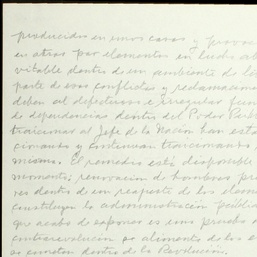 producidos en unos casos y provoca
en otros por elementos en lucha ab
vitable dentro de un ambiente de le
parte de esos conflictos y reclamacion
deben al defectuoso e irregular fun
de dependencias dentro del Poder Pú
traicionar al Jefe de la Nación han esta
cionando y continúan traicionando
misma. El remedio está disponible
momento: renovación de hombres pre
ves dentro de un reajuste de los elem
constituyen la administración públic
que acabo de exponer es una prueba d
contrarevolución se alimenta de los e
se cometen dentro de la Revolución.